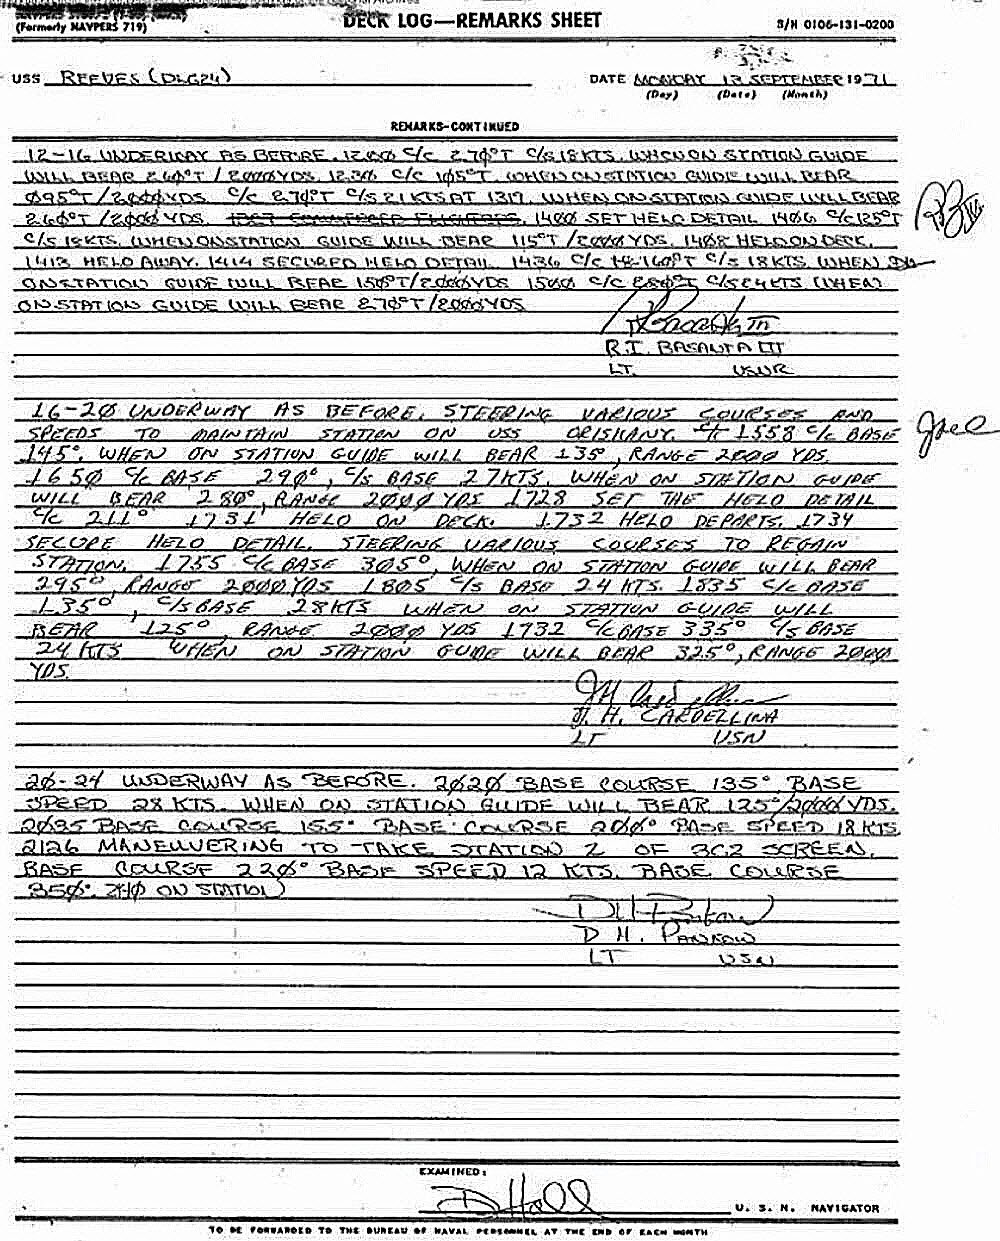 (Formerly NAVPERS 719)
DECK LOG—REMARKS SHEET
S/N 0106-131-0200
USS REEVES (DLG24)
DATE MONDAY 13 SEPTEMBER 1971
(Day) (Date) (Month)
REMARKS—CONTINUED
12-16 UNDERWAY AS BEFORE. 1200 C/C 270°T C/S 18 KTS. WHEN ON STATION GUIDE
WILL BEAR 260°T / 2000 YDS. 1236 C/C 105°T. WHEN ON STATION GUIDE WILL BEAR
095°T / 2000 YDS. C/C 270°T C/S 21 KTS AT 1317. WHEN ON STATION GUIDE WILL BEAR
260°T / 2000 YDS. 1400 SET HELO DETAIL 1406 C/C 125°T
C/S 18 KTS. WHEN ON STATION GUIDE WILL BEAR 115°T / 2000 YDS. 1408 HELO ON DECK.
1413 HELO AWAY. 1414 SECURED HELO DETAIL 1436 C/C 160°T C/S 18 KTS. WHEN
ON STATION GUIDE WILL BEAR 150°T / 2000 YDS 1500 C/C 280°T C/S 24 KTS WHEN
ON STATION GUIDE WILL BEAR 270°T / 2000 YDS
R.I. BASANTA III
LT. USNR
16-20 UNDERWAY AS BEFORE. STEERING VARIOUS COURSES AND
SPEEDS TO MAINTAIN STATION ON USS ORISKANY. 1558 C/C BASE
145°. WHEN ON STATION GUIDE WILL BEAR 135°, RANGE 2000 YDS.
1650 C/C BASE 290°, C/S BASE 27 KTS. WHEN ON STATION GUIDE
WILL BEAR 280°, RANGE 2000 YDS 1728 SET THE HELO DETAIL
C/C 211° 1731 HELO ON DECK. 1732 HELO DEPARTS. 1734
SECURE HELO DETAIL. STEERING VARIOUS COURSES TO REGAIN
STATION. 1755 C/C BASE 305°, WHEN ON STATION GUIDE WILL BEAR
295°, RANGE 2000 YDS 1805 C/S BASE 24 KTS. 1835 C/C BASE
135°, C/S BASE 28 KTS WHEN ON STATION GUIDE WILL
BEAR 125°, RANGE 2000 YDS 1932 C/C BASE 335° C/S BASE
24 KTS WHEN ON STATION GUIDE WILL BEAR 325°, RANGE 2000
YDS.
J. H. CARDELLINA
LT USN
20-24 UNDERWAY AS BEFORE. 2020 BASE COURSE 135° BASE
SPEED 28 KTS. WHEN ON STATION GUIDE WILL BEAR 125°/2000 YDS.
2035 BASE COURSE 155° BASE COURSE 200° BASE SPEED 18 KTS
2126 MANEUVERING TO TAKE STATION 2 OF 3C2 SCREEN.
BASE COURSE 220° BASE SPEED 12 KTS. BASE COURSE
350°. ON STATION
D H. PANKOW
LT USN
EXAMINED:
D Hall
U. S. N. NAVIGATOR
TO BE FORWARDED TO THE BUREAU OF NAVAL PERSONNEL AT THE END OF EACH MONTH